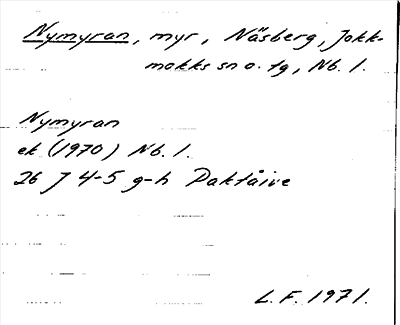 Nymyran, myr, Näsberg, Jokk-
mokks sn o. tg, Nb. l.
Nymyran
ek (1970) Nb. l.
26 J 4-5 g-h Paktåive
L.F. 1971.